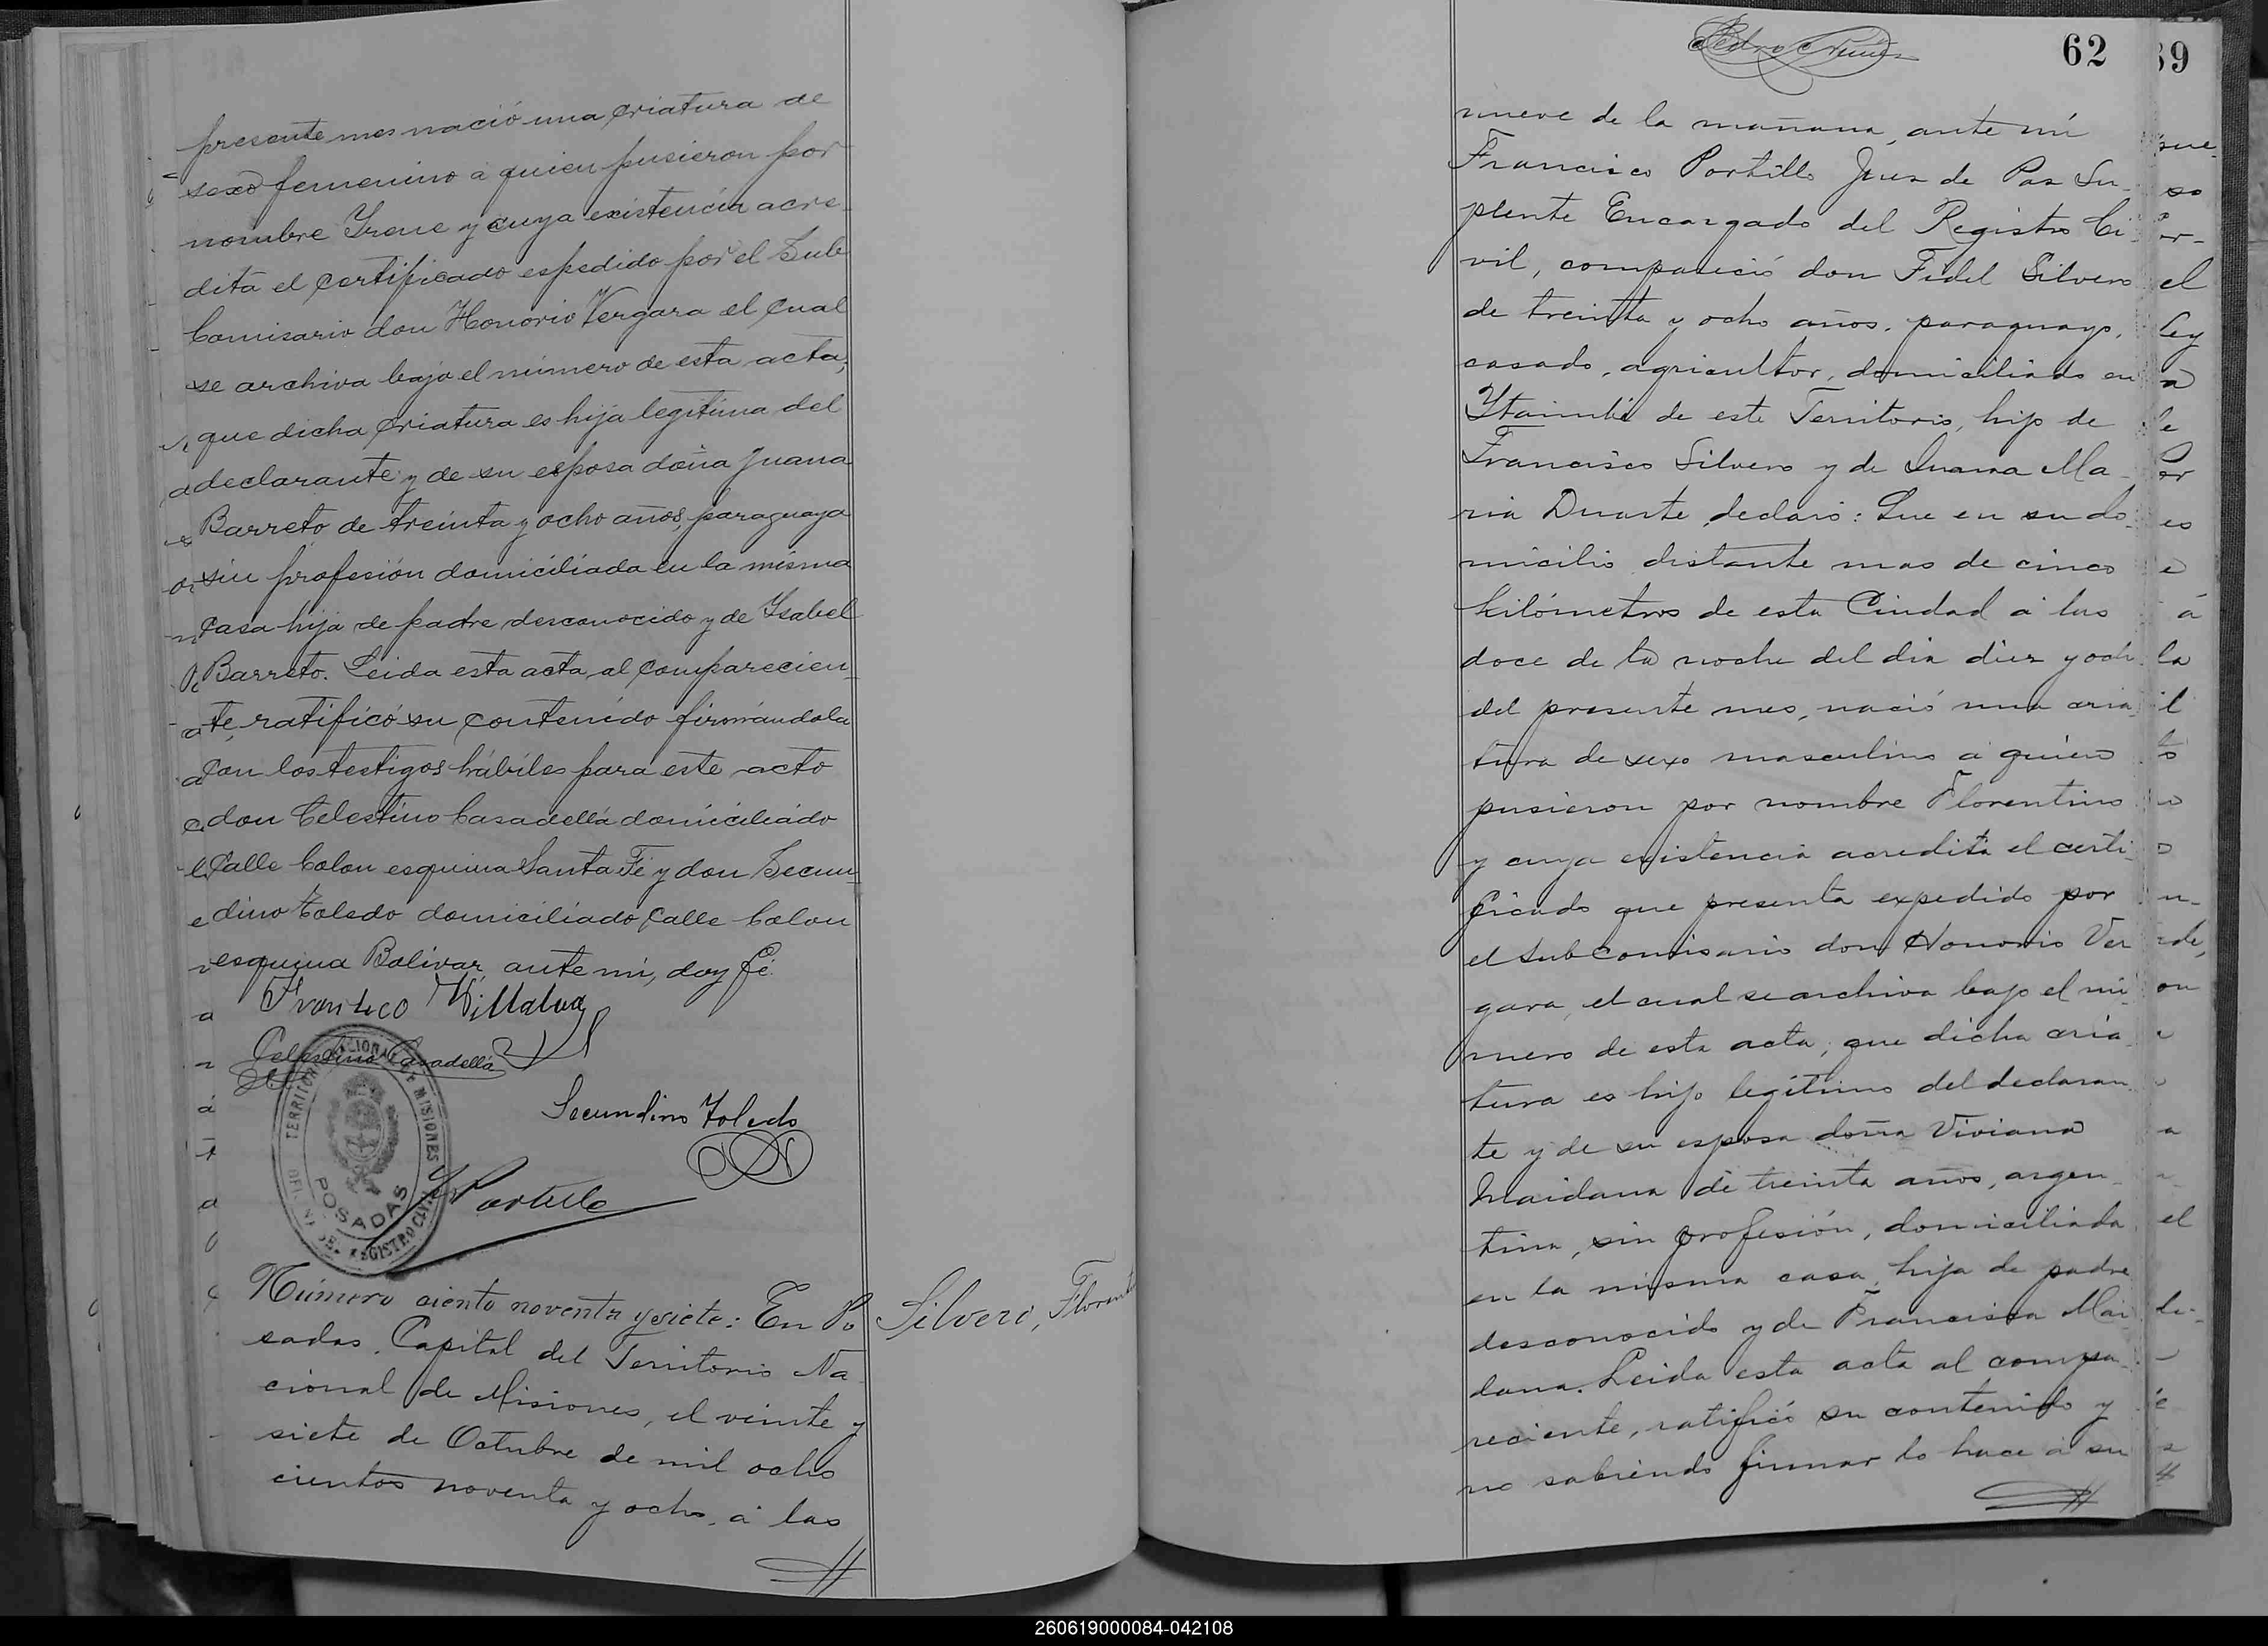 presente mes nació una criatura de
sexo femenino a quien pusieron por
nombre Irene y cuya existencia acre-
dita el certificado espedido por el Sub
Comisario don Honorio Vergara el cual
se archiva bajo el número de esta acta;
que dicha criatura es hija legitima del
declarante y de su esposa doña Juana
Barreto de treinta y ocho años, paraguaya
sin profesión domiciliada en la misma
casa hija de padre desconocido y de Ysabel
Barreto. Leida esta acta al comparecien-
te, ratificó su contenido firmándola
con los testigos hábiles para este acto
don Celestino Casadellá domiciliado
calle Colon esquina Santa Fé y don Secun-
dino Toledo domiciliado calle Colon
esquina Bolivar, ante mi, doy fé.
Francisco Villalva
Celestino Casadellá
Secundino Toledo
TERRITORIO NACIONAL DE MISIONES
POSADAS
DEL REGISTRO CIVIL
Portillo
Número ciento noventa y siete: En Po
Silvero, Florent
sadas, Capital del Territorio Na
cional de Misiones, el veinte y
siete de Octubre de mil ocho
cientos noventa y ocho, a las
62
39
nueve de la mañana, ante mi
Francisco Portillo Juez de Paz Su-
plente Encargado del Registro Ci-
vil, compareció don Fidel Silvero
de treinta y ocho años, paraguayo,
casado, agricultor, domiciliado en
Ytaimbé de este Territorio, hijo de
Francisco Silvero y de Juana Ma-
ria Duarte, declaró: Que en su do-
micilio distante mas de cinco
kilómetros de esta Ciudad a las
doce de la noche del dia diez y och
del presente mes, nació una cria-
tura de sexo masculino a quien
pusieron por nombre Florentino
y cuya existencia acredita el certi-
ficado que presenta expedido por
el sub Comisario don Honorio Ver
gara, el cual se archiva bajo el nú-
mero de esta acta; que dicha cria-
tura es hijo legitimo del declaran-
te y de su esposa doña Viviana
Maidana de treinta años, argen-
tina, sin profesión, domiciliada
en la misma casa, hija de padre
desconocido y de Francisca Mai-
dana. Leida esta acta al compa-
reciente, ratificó su contenido y
no sabiendo firmar lo hace a su
260619000084-042108